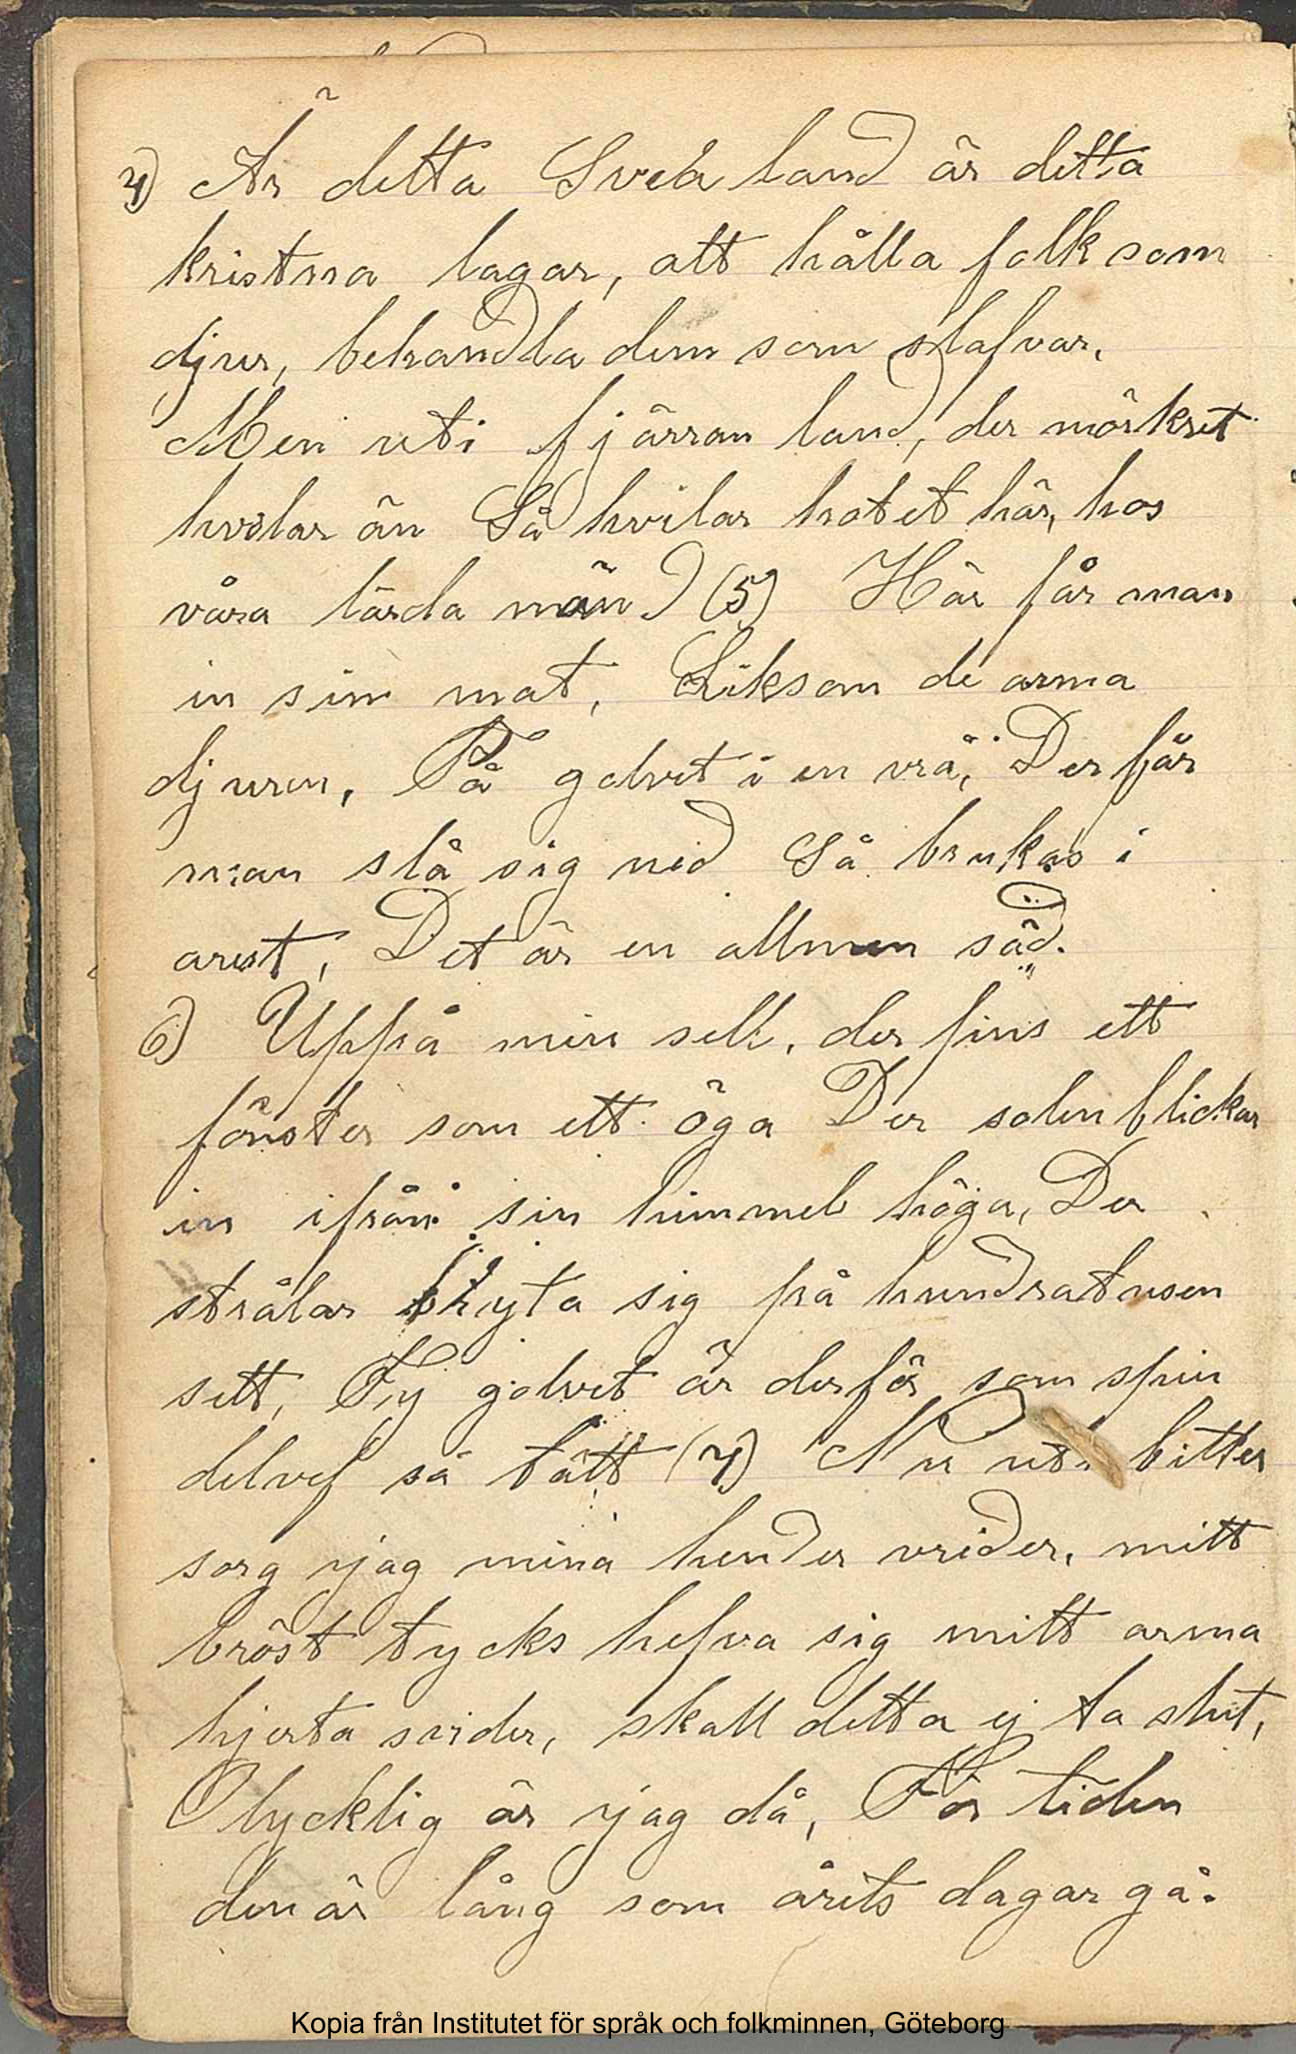 4) Är detta Svea land är detta
kristna lagar, att hålla folk som
djur, behandla dem som slafvar.
Men uti fjärran land, der mörkret
hvilar än Så hvilar hotet här, hos
våra lärda män (5) Här får man
in sin mat, Liksom de arma
djuren, På golvet i en vrå, Der får
man slå sig ned Så brukas i
arest, Det är en allmen säd.
6) Uppå min sell, der fins ett
fönster som ett öga Der solen blickar
in ifrån sin himmel höga, Der
strålar bryta sig på hundratusen
sett, Ty golvet är derför som spin
delvef så tätt (7) Nu uti bitter
sorg jag mina hender vrider, mitt
bröst tycks hefva sig mitt arma
hjerta svider, skall detta ej ta slut,
Olycklig är jag då, För tiden
den är lång som årets dagar gå.
Kopia från Institutet för språk och folkminnen, Göteborg